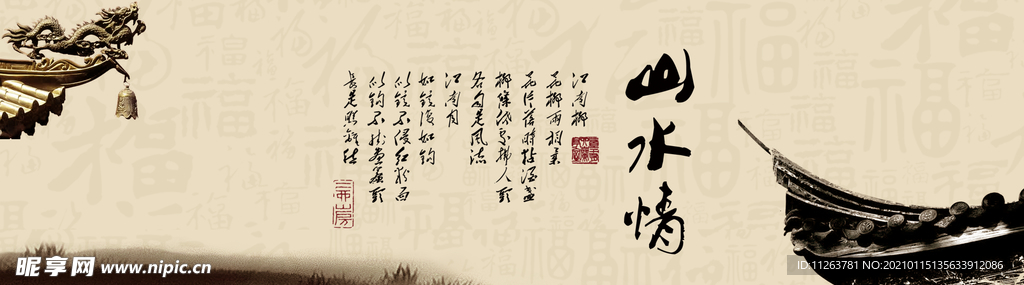 山水情
江南柳
花柳两相柔
花片落時黏酒盏
柳條低處拂人頭
各自是風流
江南月
如鏡復如鈎
似鏡不侵紅粉面
似鈎不挂畫簾頭
長是照離愁
昵享网 www.nipic.cn
ID:11263781 NO:20210115135633912086